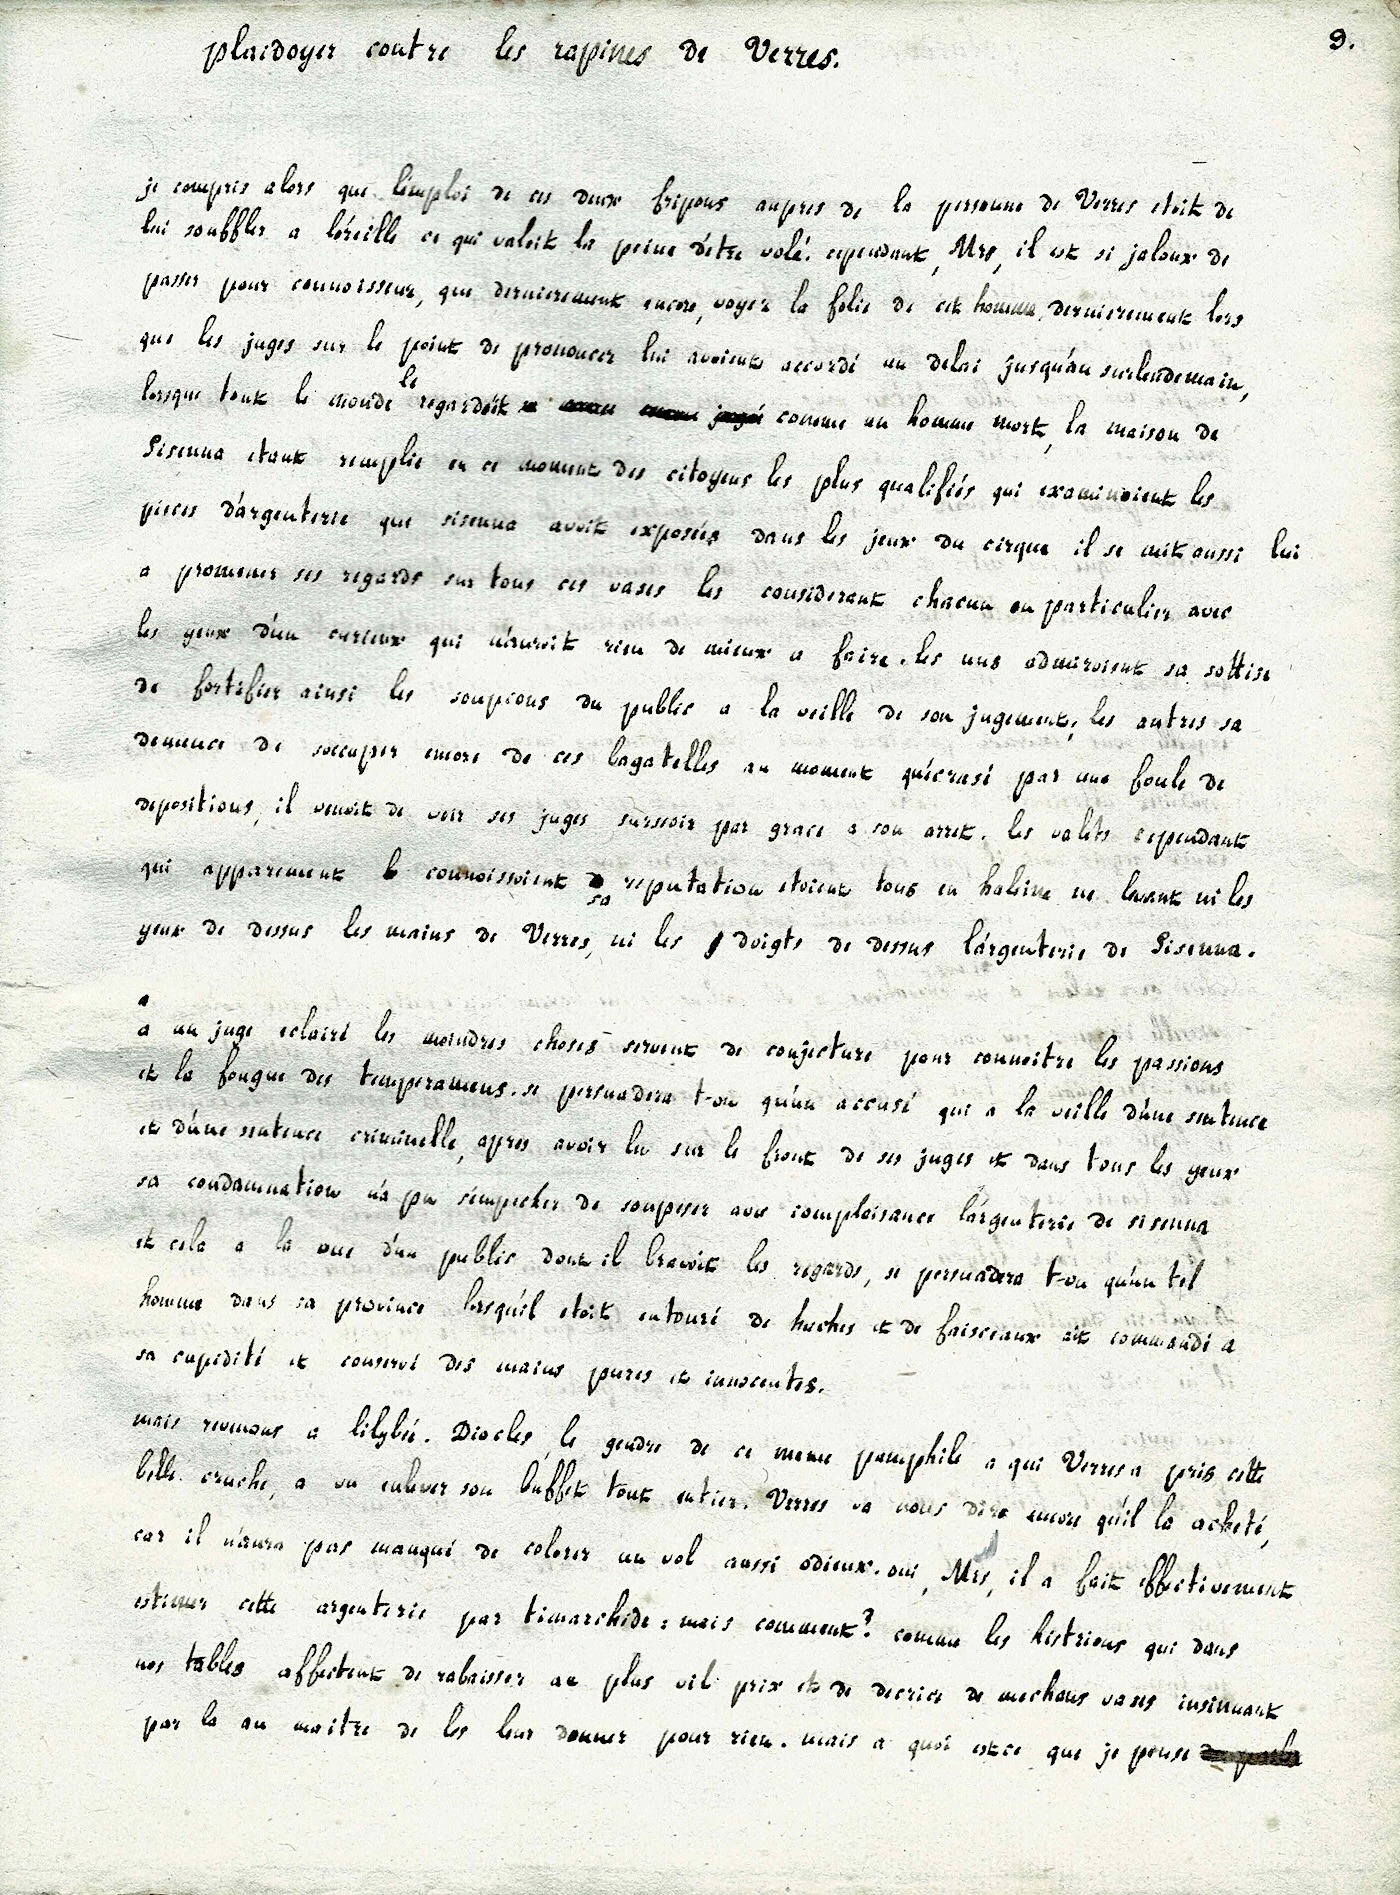 plaidoyer contre les rapines de Verres.
9.
je compris alors que l'emploi de ces deux fripons aupres de la personne de Verres etoit de
lui souffler a l'oreille ce qui valoit la peine d'etre volé. cependant, Mrs, il est si jaloux de
passer pour connoisseur, que dernierement encore, voyez la folie de cet homme, dernierement lors
que les juges sur le point de prononcer lui avoient accordé un delai jusqu'au surlendemain,
lorsque tout le monde le regardoit comme un homme mort, la maison de
Sisenna etant remplie en ce moment des citoyens les plus qualifiés qui examinoient les
pieces d'argenterie que sisenna avoit exposées dans les jeux du cirque il se mit aussi lui
a promener ses regards sur tous ces vases les considerant chacun en particulier avec
les yeux d'un curieux qui n'auroit rien de mieux a faire. les uns admiroient sa sottise
de fortifier ainsi les soupçons du public a la veille de son jugement, les autres sa
demence de s'occuper encore de ces bagatelles au moment qu'ecrasé par une foule de
depositions, il venoit de voir ses juges surseoir par grace a son arret. les valets cependant
qui apparement le connoissoient sa reputation etoient tous en haleine ne levant ni les
yeux de dessus les mains de Verres, ni les doigts de dessus l'argenterie de Sisenna.
a un juge eclairé les moindres choses servent de conjecture pour connoitre les passions
et la fougue des temperamens. se persuadera t-on qu'un accusé qui a la veille d'une sentence
et d'une sentence criminelle, apres avoir lu sur le front de ses juges et dans tous les yeux
sa condamnation n'a pu s'empecher de soupeser avec complaisance l'argenterie de sisenna
et cela a la vue d'un public dont il bravoit les regards, se persuadera t-on qu'un tel
homme dans sa province lorsqu'il etoit entouré de haches et de faisceaux ait commandé a
sa cupidité et conservé des mains pures et innocentes.
mais revenons a lilybée. Diocles, le gendre de ce meme pamphile a qui Verres a pris cette
belle cruche, a vu enlever son buffet tout entier. Verres va nous dire encore qu'il la acheté,
car il n'aura pas manqué de colorer un vol aussi odieux. oui, Mrs, il a fait effectivement
estimer cette argenterie par timarchide : mais comment? comme les histrions qui dans
nos tables affectent de rabaisser au plus vil prix et de decrier de mechans vases insinuant
par la au maitre de les leur donner pour rien. mais a quoi est ce que je pense